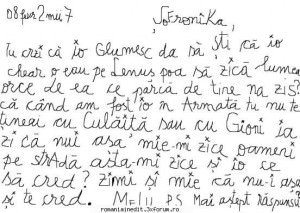 08 fur 2 mii 7
SofroniKa,
Tu crzi că io Glumesc da să Ști că io
chear o eau pe Lenuș poa să zică lumea
orce de ea ce parcă de tine na zis?
că când am fost io în Armată tu nu te
țineai cu Culăiță sau cu Gioni ia
zi că nui așa, mie-mi zice oameni
pe stradă asta-mi zice și io ce
să cred? zîmi și mie că nu-i așa
și te cred. M=Iu P.S Mai aștept răspunsu
romaniainedit.3xforum.ro